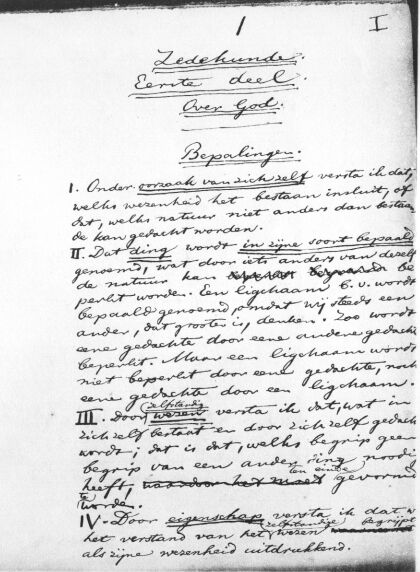 1
I
Zedekunde.
Eerste deel.
Over God.
Bepalingen.
I. Onder oorzaak van zich zelf versta ik dat,
welks wezenheid het bestaan insluit, of
dat, welks natuur niet anders dan bestaan
de kan gedacht worden.
II. Dat ding wordt in zijne soort bepaald
genoemd, wat door iets anders van dezelf
de natuur kan be
perkt worden. Een ligchaam b.v. wordt
bepaald genoemd, omdat wij steeds een
ander, dat grooter is, denken. Zoo wordt
eene gedachte door eene andere gedachte
beperkt. Maar een ligchaam wordt
niet beperkt door eene gedachte, noch
eene gedachte door een ligchaam.
zelfstandig
III. Door wezen versta ik dat, wat in
zich zelf bestaat en door zich zelf gedacht
wordt; dat is dat, welks begrip geen
begrip van een ander ding noodig
heeft, waardoor het moet ten einde gevormd
te worden.
IV. Door eigenschap versta ik dat w
het verstand van het zelfstandige wezen begrijpt
als zijne wezenheid uitdrukkend.